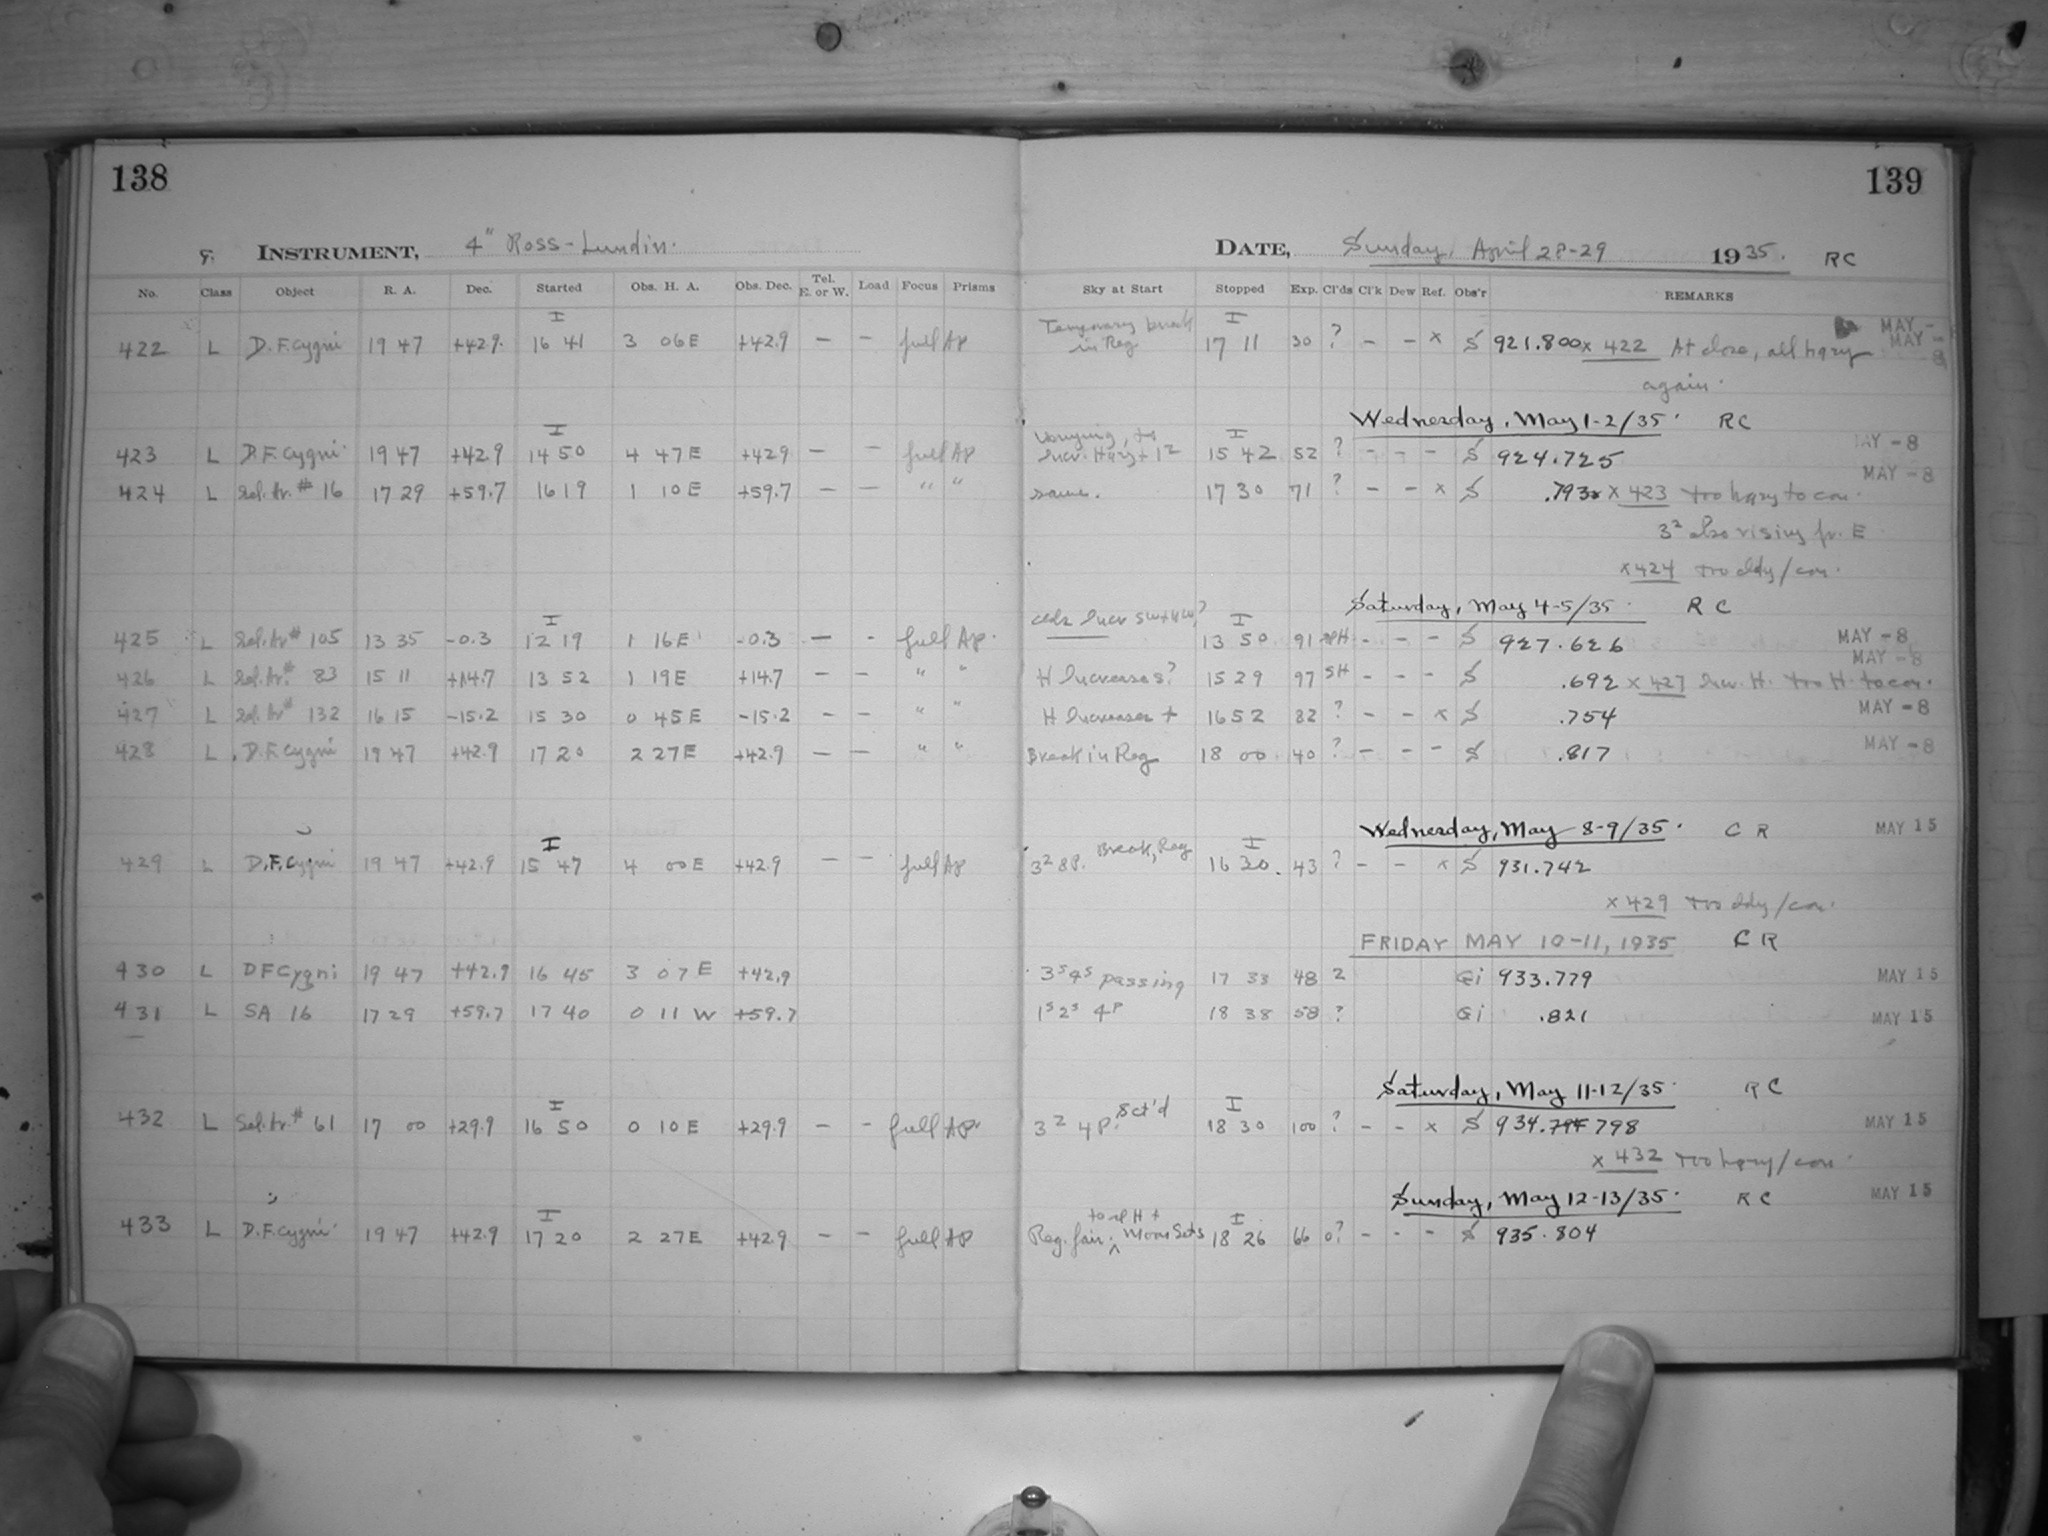 138
139
INSTRUMENT, 4" Ross-Lundin.
DATE, Sunday, April 28-29 1935. RC
No. Class Object R. A. Dec. Started Obs. H. A. Obs. Dec. Tel. E. or W. Load Focus Prisms Sky at Start Stopped Exp. Cl'ds Cl'k Dew Ref. Obs'r REMARKS
I Temporary break I MAY -
422 L D.F. Cygni 19 47 +42.9 16 41 3 06E +42.9 — — full Ap in Reg 17 11 30 ? – – x S 921.800 x 422 At close, all hazy MAY - 8
again.
Wednesday, May 1-2/35. RC
I I
423 L D.F. Cygni 19 47 +42.9 14 50 4 47E +42.9 — — full Ap 15 42 52 ? – – – S 924.725 MAY - 8
424 L Sel. Ar. # 16 17 29 +59.7 16 19 1 10E +59.7 — — " " same. 17 30 71 ? – – x S .793 x 423 too hazy to con. MAY - 8
3² also rising fr. E
x 424 too cldy/con.
Saturday, May 4-5/35. RC
I I
425 L Sel. Ar # 105 13 35 -0.3 12 19 1 16E -0.3 — - full Ap. 13 50 91 – – – S 927.626 MAY - 8
426 L Sel. Ar. # 83 15 11 +14.7 13 52 1 19E +14.7 — — " " H Increases? 15 29 97 SH – – – S .692 x 427 Incr. H. too H. to con. MAY - 8
427 L Sel. Ar # 132 16 15 -15.2 15 30 0 45E -15.2 — — " " H Increases + 16 52 82 ? – – x S .754 MAY - 8
428 L D.F. Cygni 19 47 +42.9 17 20 2 27E +42.9 — — " " Break in Reg 18 00 40 ? – – – S .817 MAY - 8
Wednesday, May 8-9/35. CR MAY 15
I I
429 L D.F. Cygni 19 47 +42.9 15 47 4 00E +42.9 — — full Ap 3² 8P. Break, Reg 16 30. 43 ? – – x S 931.742
x 429 too cldy/con.
FRIDAY MAY 10-11, 1935 CR
430 L DF Cygni 19 47 +42.9 16 45 3 07E +42.9 3ˢ4ˢ passing 17 33 48 2 Gi 933.779 MAY 15
431 L SA 16 17 29 +59.7 17 40 0 11 W +59.7 1ˢ2ˢ 4ᴾ 18 38 58 ? Gi .821 MAY 15
Saturday, May 11-12/35. RC
I I
432 L Sel. Ar. # 61 17 00 +29.9 16 50 0 10E +29.9 — — full Ap. 3² 4P. Sct'd 18 30 100 ? – – x S 934.798 MAY 15
x 432 too hazy/con.
Sunday, May 12-13/35. RC MAY 15
I I
433 L D.F. Cygni 19 47 +42.9 17 20 2 27E +42.9 — — full Ap Reg. fair. Moon Sets 18 26 66 0? – – – S 935.804